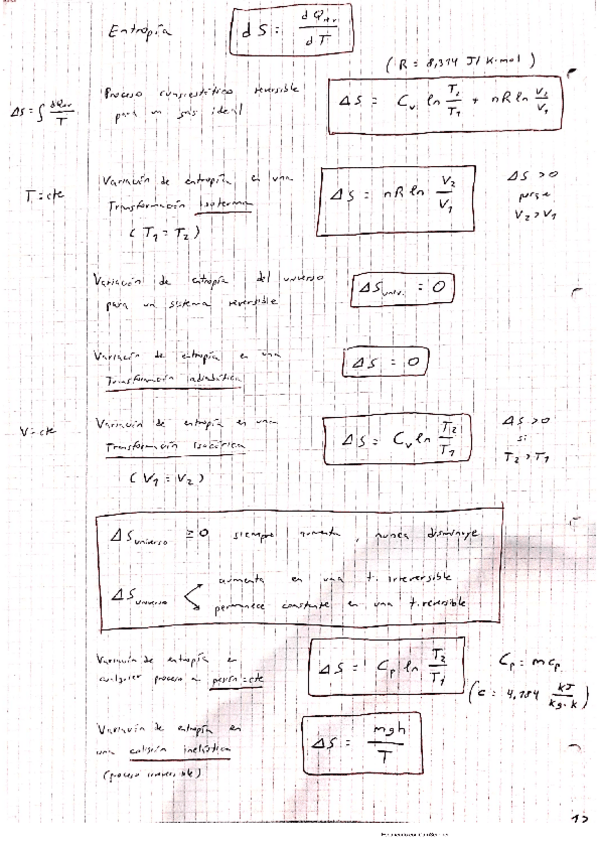 Entropía dS = dQrev / dT
(R = 8,314 J/K·mol)
ΔS = ∫ dQrev / T
Proceso cuasiestático reversible
para un gas ideal
ΔS = Cv ln T2/T1 + nR ln V2/V1
T = cte
Variación de entropía en una
Transformación Isoterma
(T1 = T2)
ΔS = nR ln V2/V1
ΔS > 0
porque
V2 > V1
Variación de entropía del universo
para un sistema reversible
ΔSuniv. = 0
Variación de entropía en una
Transformación adiabática
ΔS = 0
V = cte
Variación de entropía en una
Transformación Isocórica
(V1 = V2)
ΔS = Cv ln T2/T1
ΔS > 0
si
T2 > T1
ΔSuniverso ≥ 0 siempre aumenta, nunca disminuye
ΔSuniverso
aumenta en una t. irreversible
permanece constante en una t. reversible
Variación de entropía en
cualquier proceso a presión = cte
ΔS = Cp ln T2/T1
Cp = m cp
(c = 4,184 kJ/kg·K)
Variación de entropía en
una colisión inelástica
(proceso irreversible)
ΔS = mgh / T